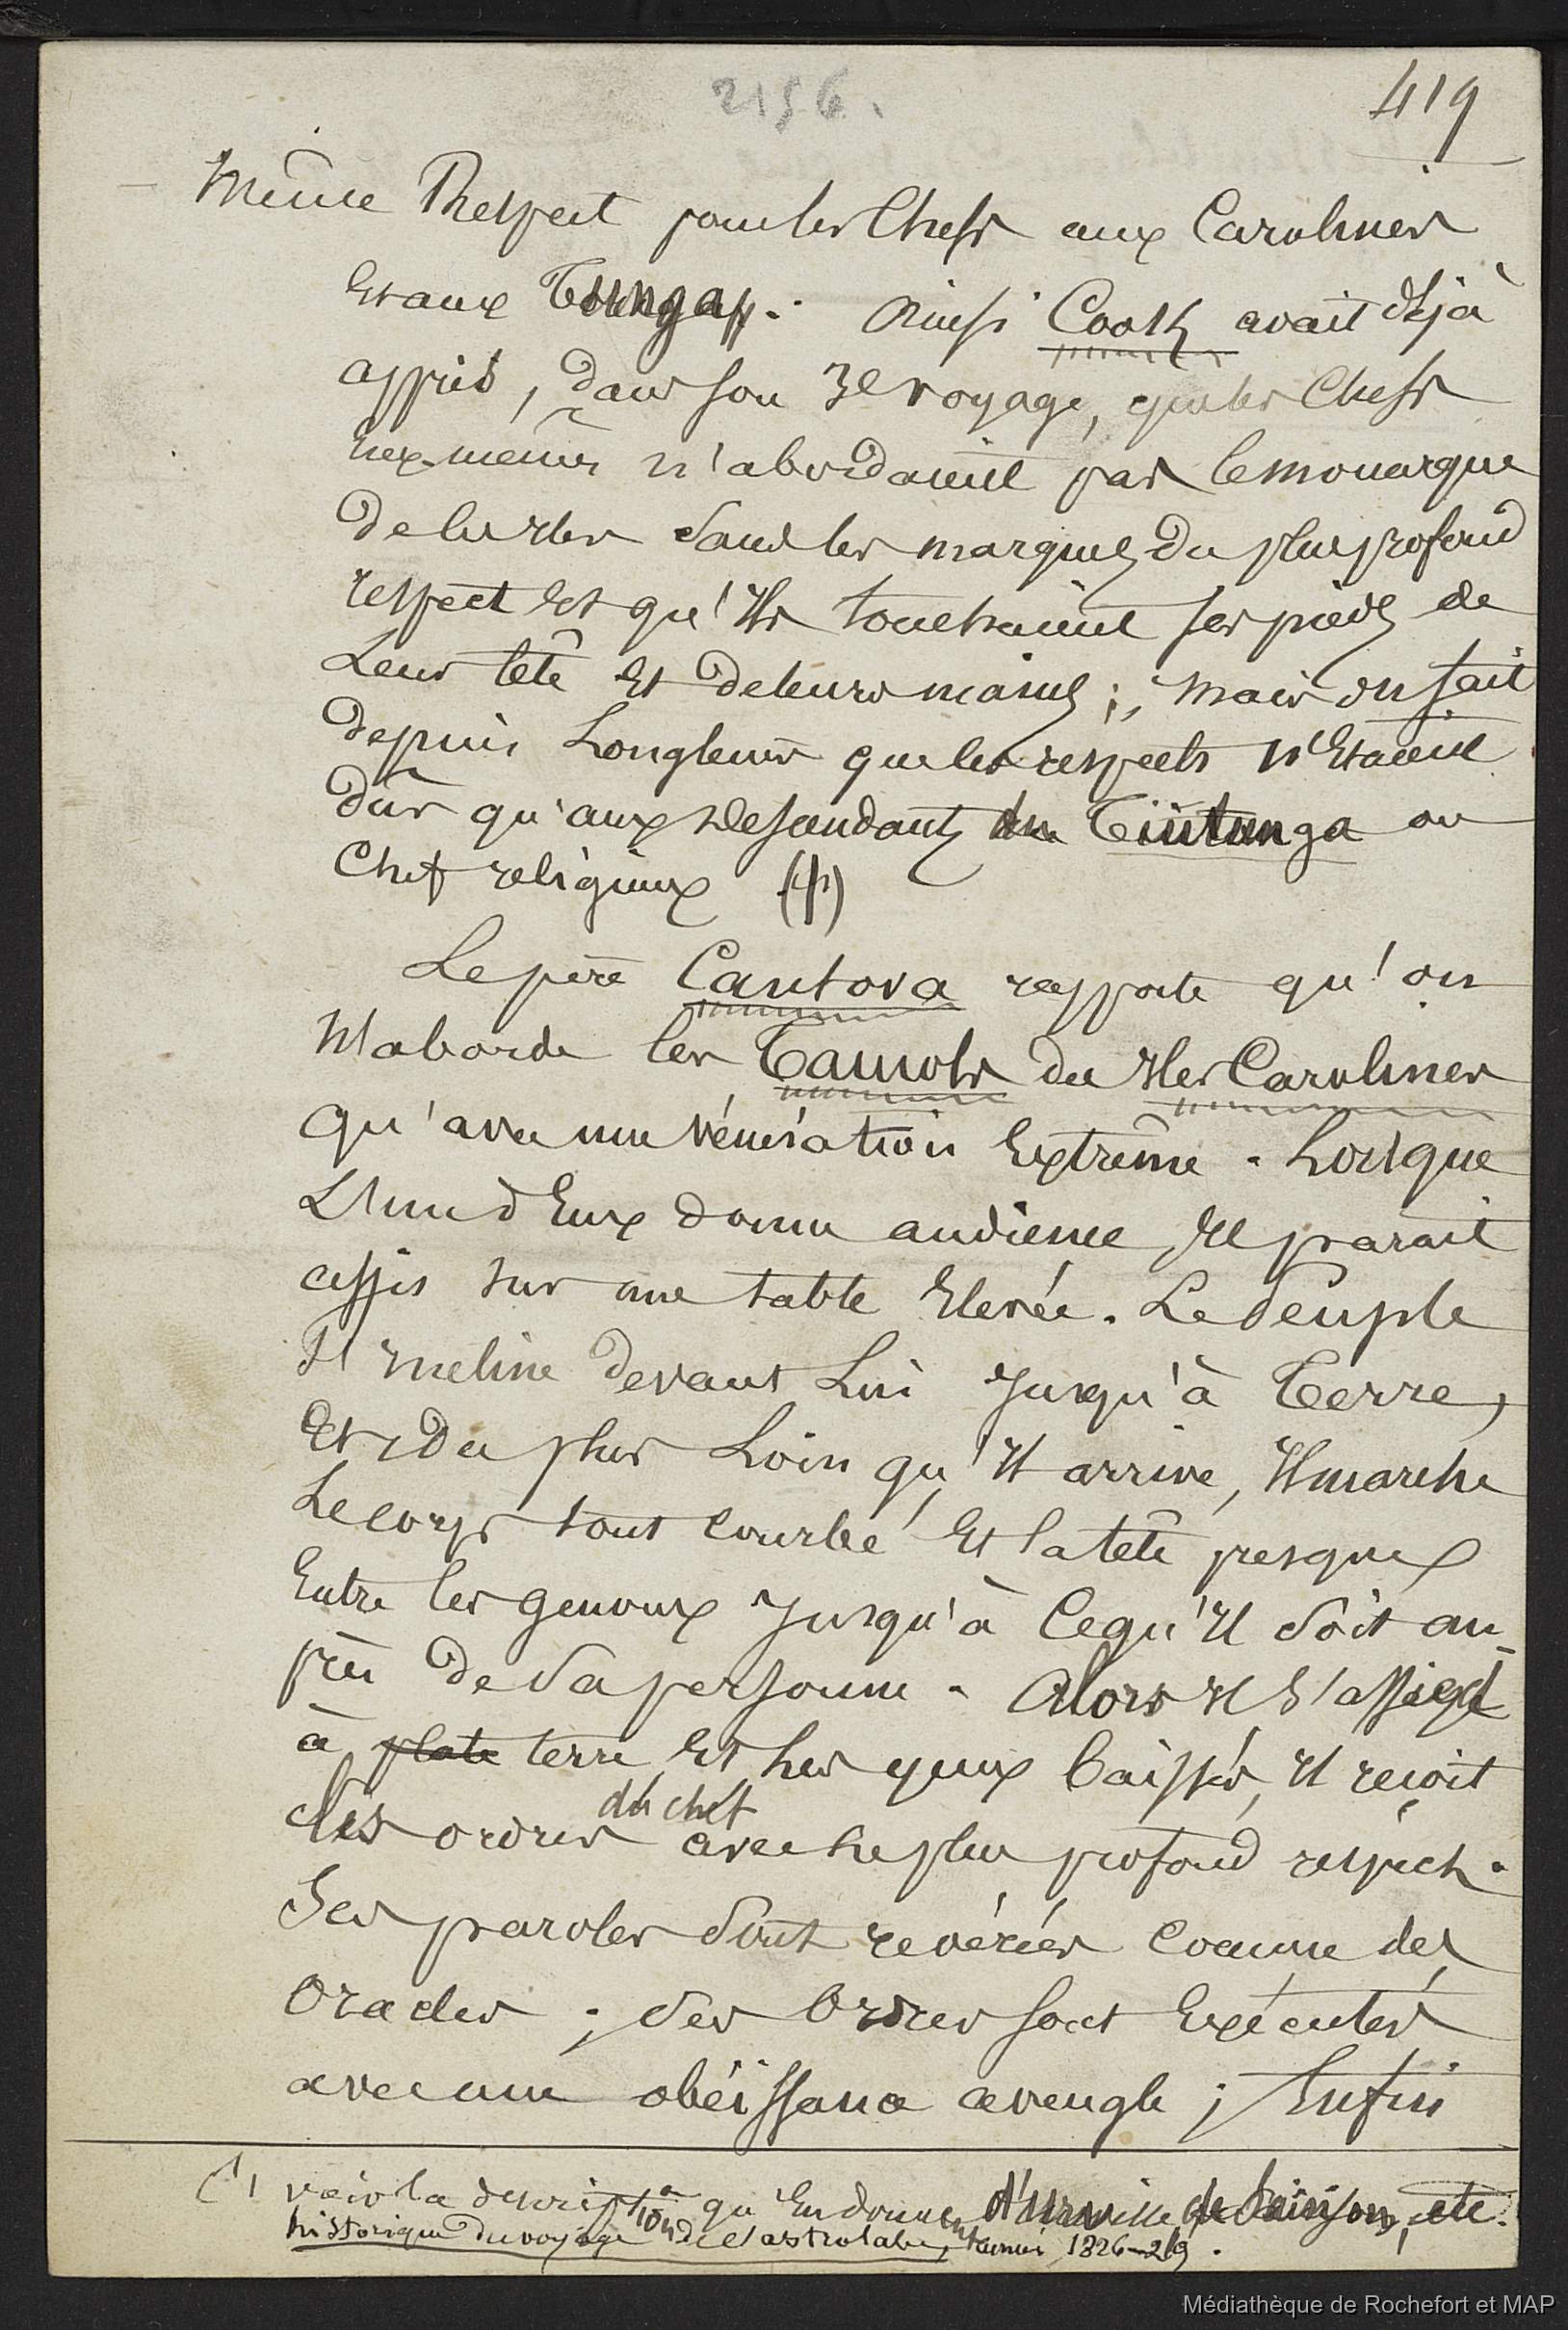 2156.
419
Même Respect pour les Chefs aux Carolines
Et aux Tunga. Ainsi Cook avait déjà
appris, dans son 3e voyage, que les Chefs
Eux-mêmes n'abordaient pas le monarque
de les Iles sans les marques du plus profond
respect Et qu'Ils touchaient ses pieds de
Leur tête Et de leurs mains ; mais on sait
depuis Longtems que les respects n'Etaient
dûs qu'aux descendants du Tuitunga ou
Chef religieux (1)
Le père Cantova rapporte qu'on
N'aborde les Tamols des Iles Carolines
qu'avec une vénération Extrême. Lorsque
L'un d'Eux donne audience, Il parait
assis sur une table Elevée. Le Peuple
S'incline devant Lui Jusqu'à Terre,
Et du plus Loin qu'Il arrive, Il marche
Le corps tout courbé Et la tête presque
Entre les genoux Jusqu'à Ce qu'Il soit au-
près de sa personne. Alors Il s'assied
à plate terre Et Les yeux baissés, Il reçoit
les ordres du chef avec Le plus profond respect.
Ses paroles sont révérées Comme des
Oracles ; ses Ordres sont Exécutés
avec une obéissance aveugle ; Enfin
(1) voir la description qu'En donnent d'Urville de Sainson, etc.
historique du voyage de l'astrolabe, 1826-29.
Médiathèque de Rochefort et MAP